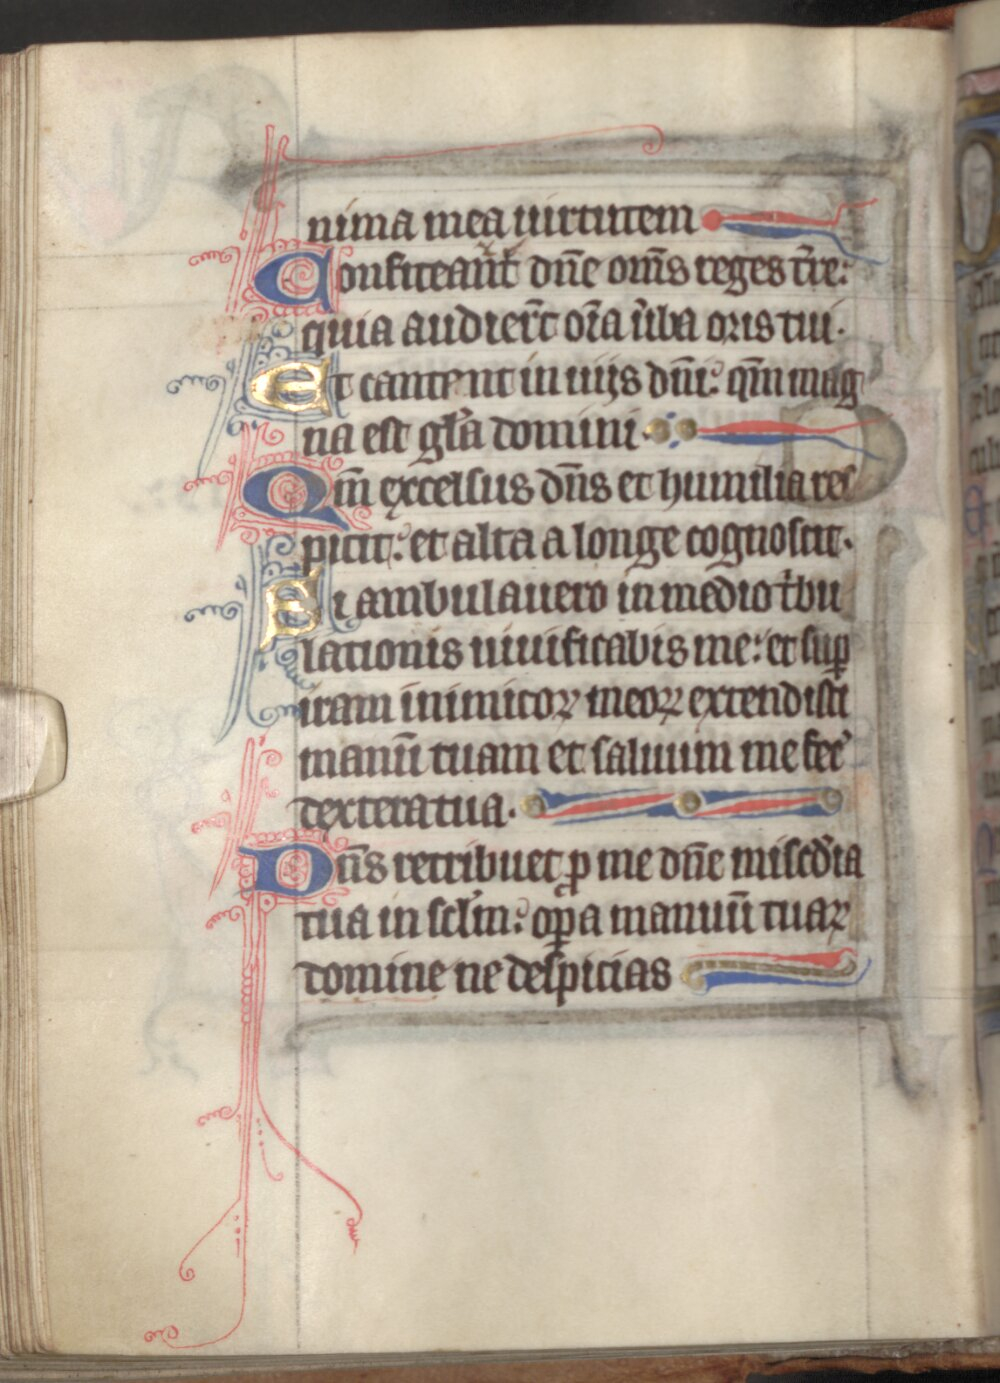 nima mea uirtutem
Confiteant̄ dn̄e om̄s reges tr̄e:
quia audier̄t oīa ūba oris tui.
Et cantent in uijs dn̄i: qm̄ mag
na est gl̄a domini.
Qm̄ excelsus dn̄s et humilia res
picit: et alta a longe cognoscit.
Si ambulauero in medio tͥbu
lationis uiuificabis me: et sup̄
iram inimicoꝝ meoꝝ extendisti
manū tuam et saluum me fec̄
dextera tua.
Dn̄s retribuet ꝓ me dn̄e misc̄dīa
tua in sc̄l̄m: oꝑa manuū tuaꝝ
domine ne despicias